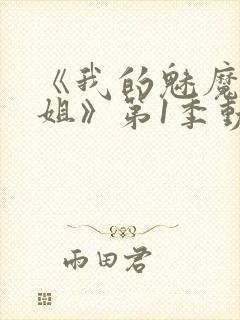 《我的魅魔
姐》第1季動
雨田君